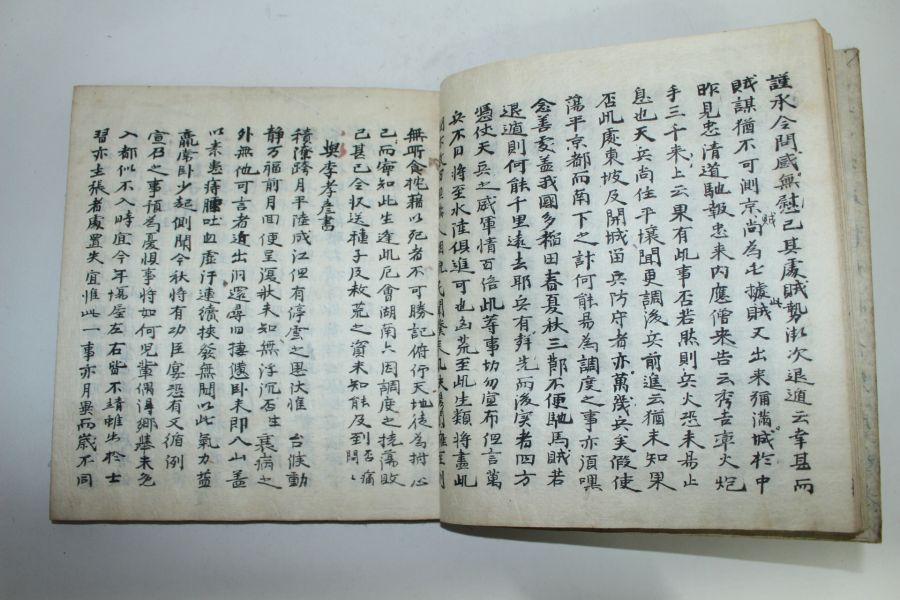 護承令問感無慰已其處賊勢漸次退遁云幸甚而
賊謀猶不可測京尚為賊據賊又出来彌滿城於中
昨見忠清道馳報忠来内應僧来告云秀吉率火炮
手三千来上云果有此事否若然則兵火恐未易止
息也天兵尚住平壤聞更調後兵前進云猶未知果
否此處東坡及開城留兵防守者亦萬幾兵矣假使
蕩平京都而南下之計何能易為調度之事亦須嘿
念善處盖我國多稻田春夏秋三節不便馳馬賊若
退遁則何能千里遠去耶兵有先而後实者四方
憑仗天兵之威軍情百倍此等事切勿宣布但言萬
兵不日將至水陸俱進可也凶荒至此生類將盡此
無所食枕藉以死者不可勝記俯仰天地徒為拊心
已而審知此生逢此厄會湖南亦因調度之撓蕩敗
已甚已令状送種子及救荒之資未知能及到否痛
與李孝彦書
積陰跨月平陸成江但有停雲之思伏惟 台候動
静万福前月回便呈復状未知無浮沉否生衰病之
外無他可言者近出洞還尋旧捿僾卧未即入山盖
以素患痔腫吐血虗汗連發無間以此氣力益
羸常卧少起側聞今秋將有功臣宴恐有又循例
宣召之事預為憂惧事將如何児輩偶得鄉基未免
入都似不入時宜今年場屋左右皆不靖雖出於士
習亦主張者處置失宜惟此一事亦月異而歲不同